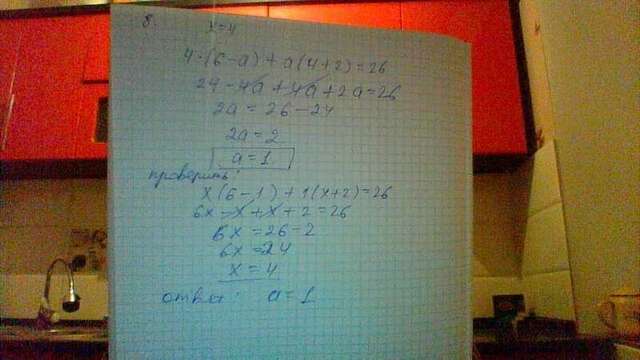 8. x=4
4·(6-a)+a(4+2)=26
24-4a+4a+2a=26
2a=26-24
2a=2
a=1
проверить:
x(6-1)+1(x+2)=26
6x-x+x+2=26
6x=26-2
6x=24
x=4
ответ: a=1